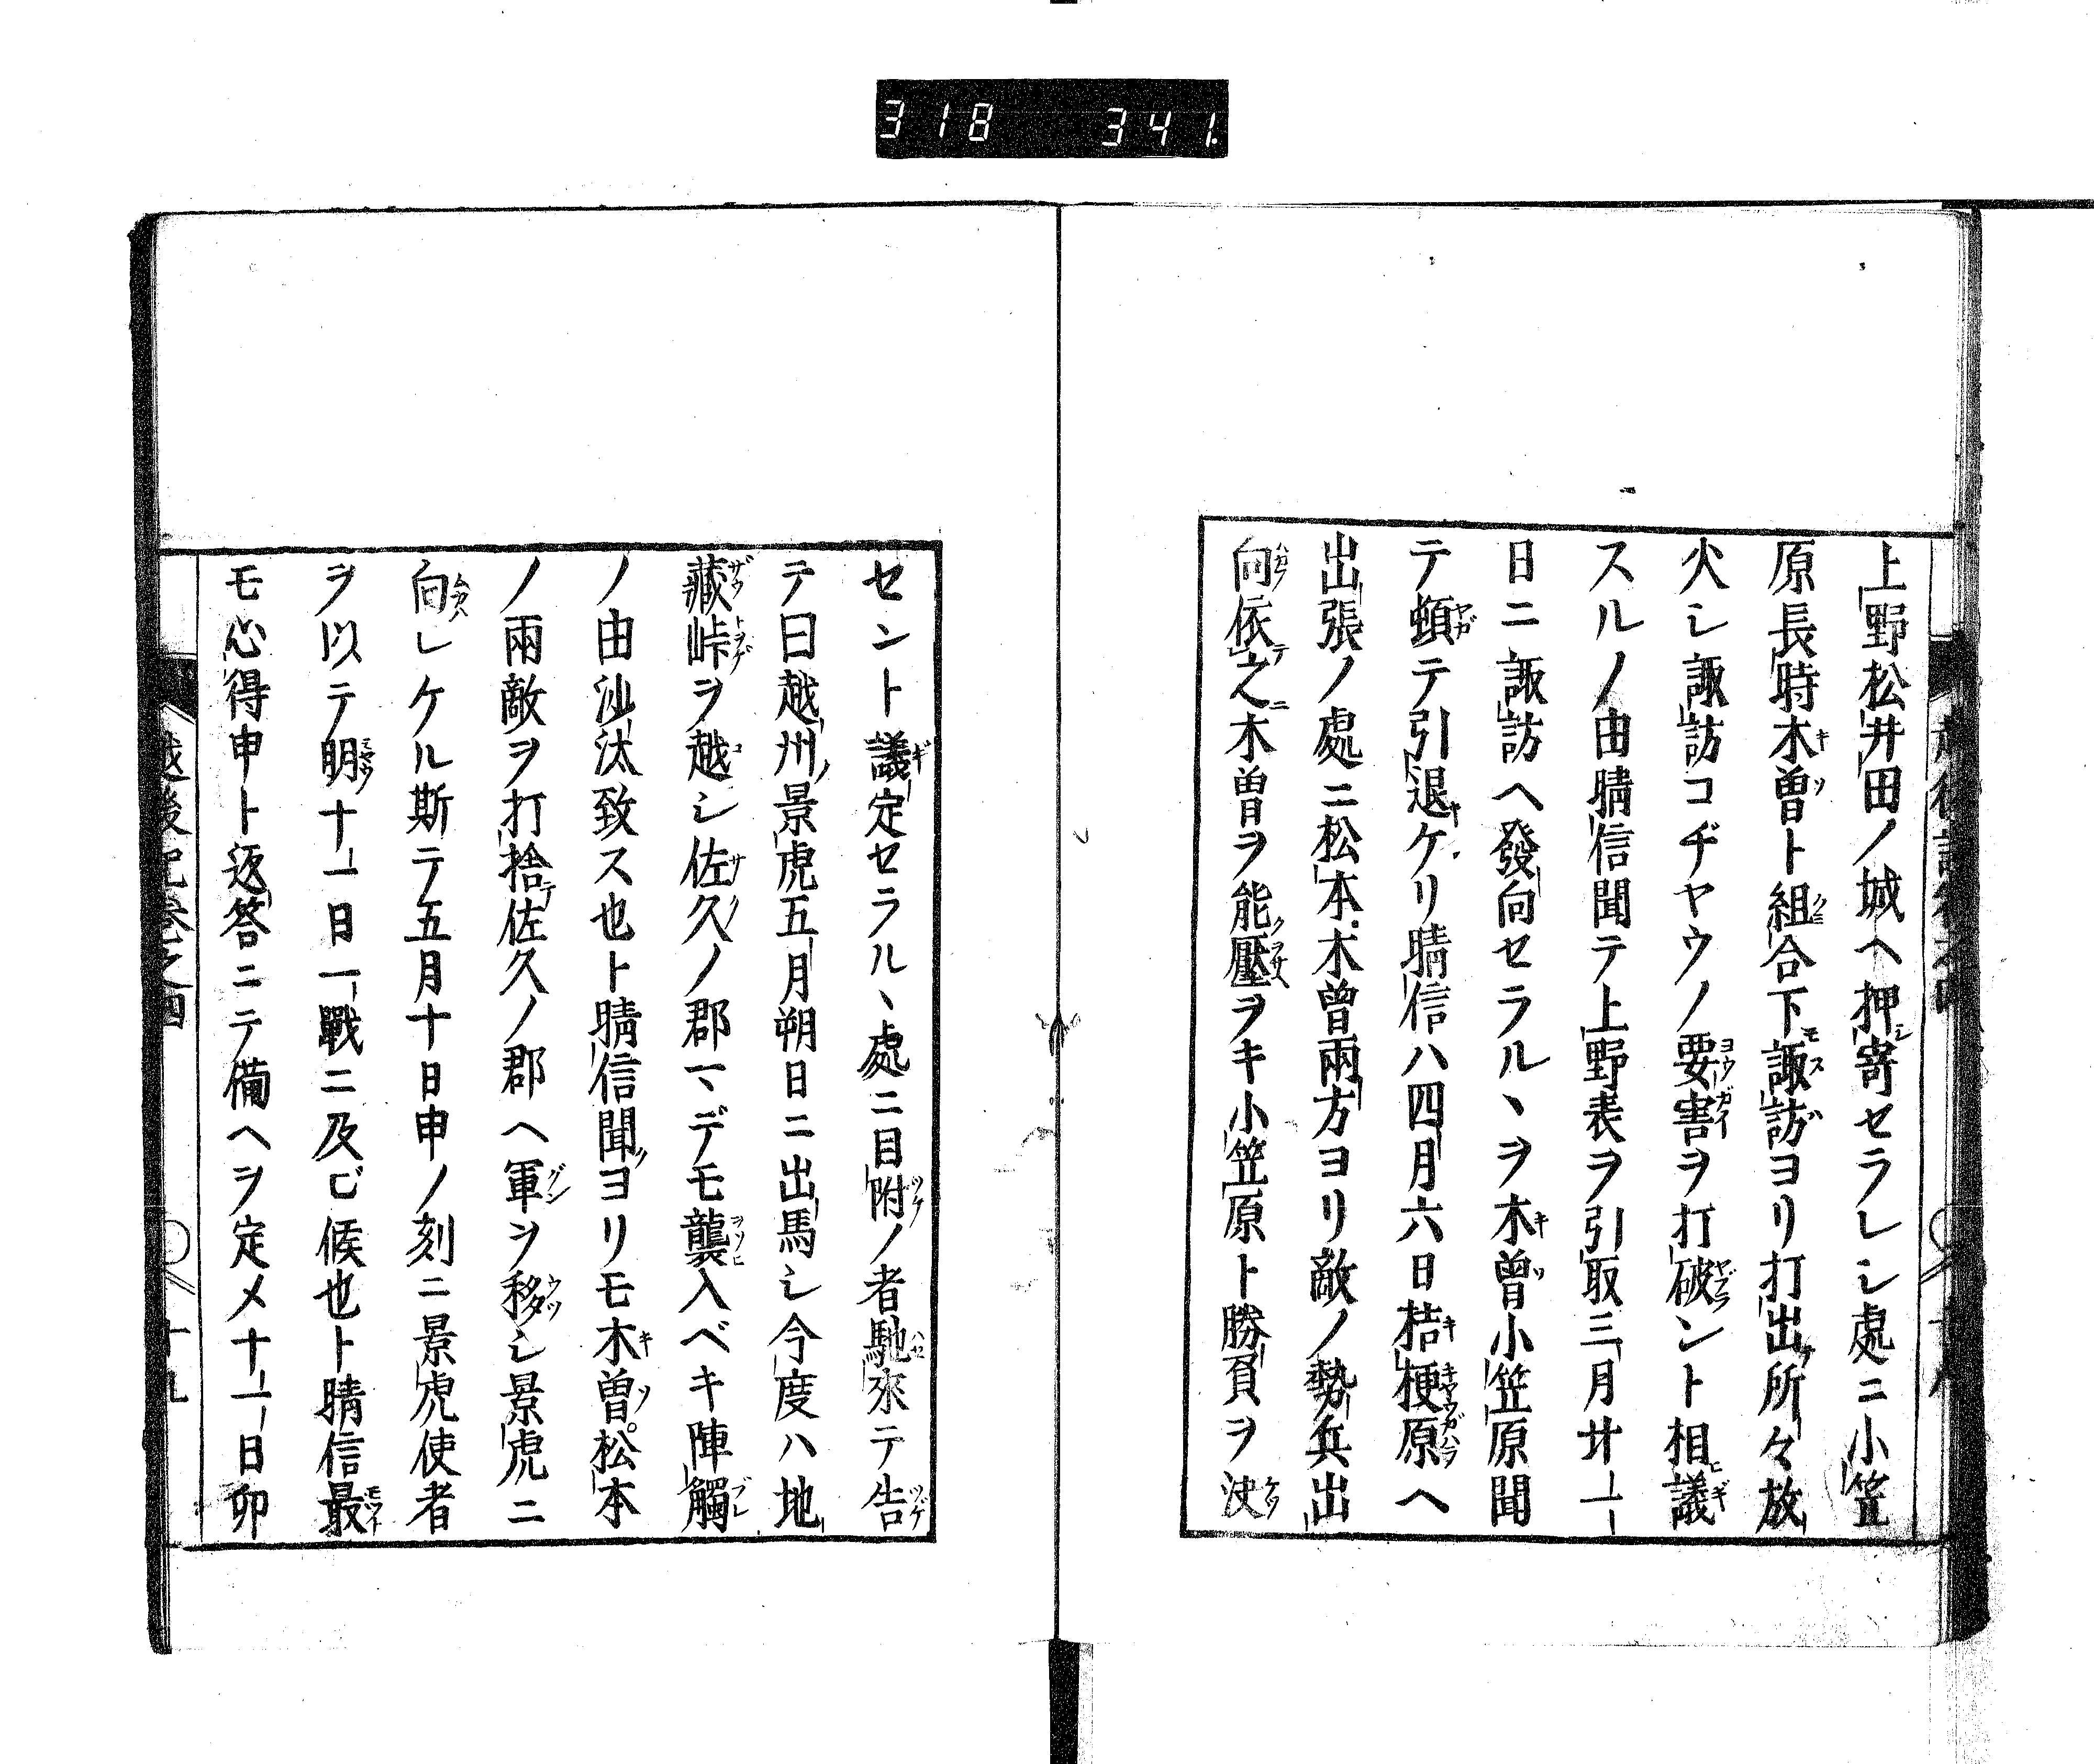 318 341
上野松井田ノ城ヘ押寄セラレシ處ニ小笠
原長時木曽ト組合下諏訪ヨリ打出所々放
火シ諏訪コヂヤウノ要害ヲ打破ント相議
スルノ由晴信聞テ上野表ヲ引取三月廿一
日ニ諏訪ヘ發向セラルヽヲ木曽小笠原聞
テ頓テ引退ケリ晴信ハ四月六日桔梗原ヘ
出張ノ處ニ松本木曽兩方ヨリ敵ノ勢兵出
向依之木曽ヲ能壓ヲキ小笠原ト勝負ヲ決
セント議定セラルヽ處ニ目附ノ者馳來テ告
テ曰越州景虎五月朔日ニ出馬シ今度ハ地
藏峠ヲ越シ佐久ノ郡マデモ襲入ベキ陣觸
ノ由沙汰致ス也ト晴信聞ヨリモ木曽松本
ノ兩敵ヲ打捨佐久ノ郡ヘ軍ヲ移シ景虎ニ
向レケル斯テ五月十日申ノ刻ニ景虎使者
ヲ以テ明十一日一戰ニ及ビ候也ト晴信最
モ心得申ト返答ニテ備ヘヲ定メ十一日卯
越後記卷之四 十九